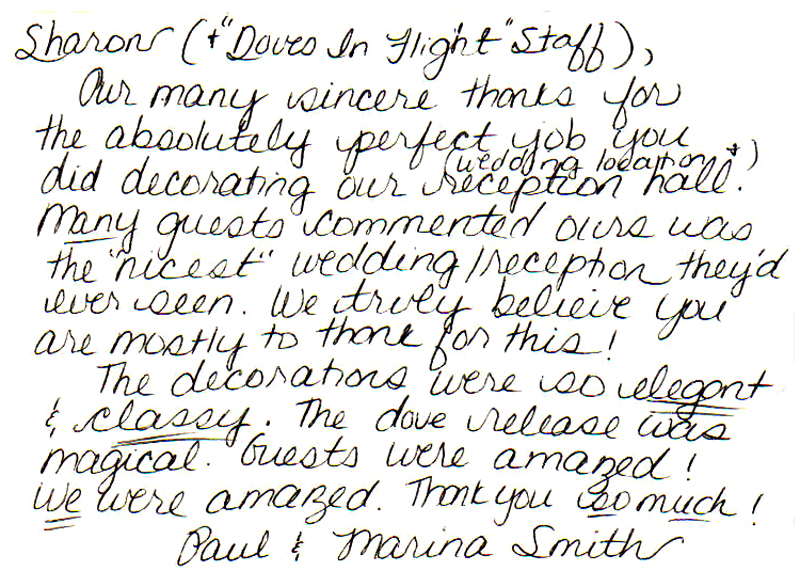 Sharon (+ "Doves In Flight" Staff),
Our many sincere thanks for
the absolutely perfect job you
(wedding location +)
did decorating our reception hall.
Many guests commented ours was
the "nicest" wedding/reception they'd
ever seen. We truly believe you
are mostly to thank for this!
The decorations were so elegant
& classy. The dove release was
magical. Guests were amazed!
We were amazed. Thank you so much!
Paul & Marina Smith